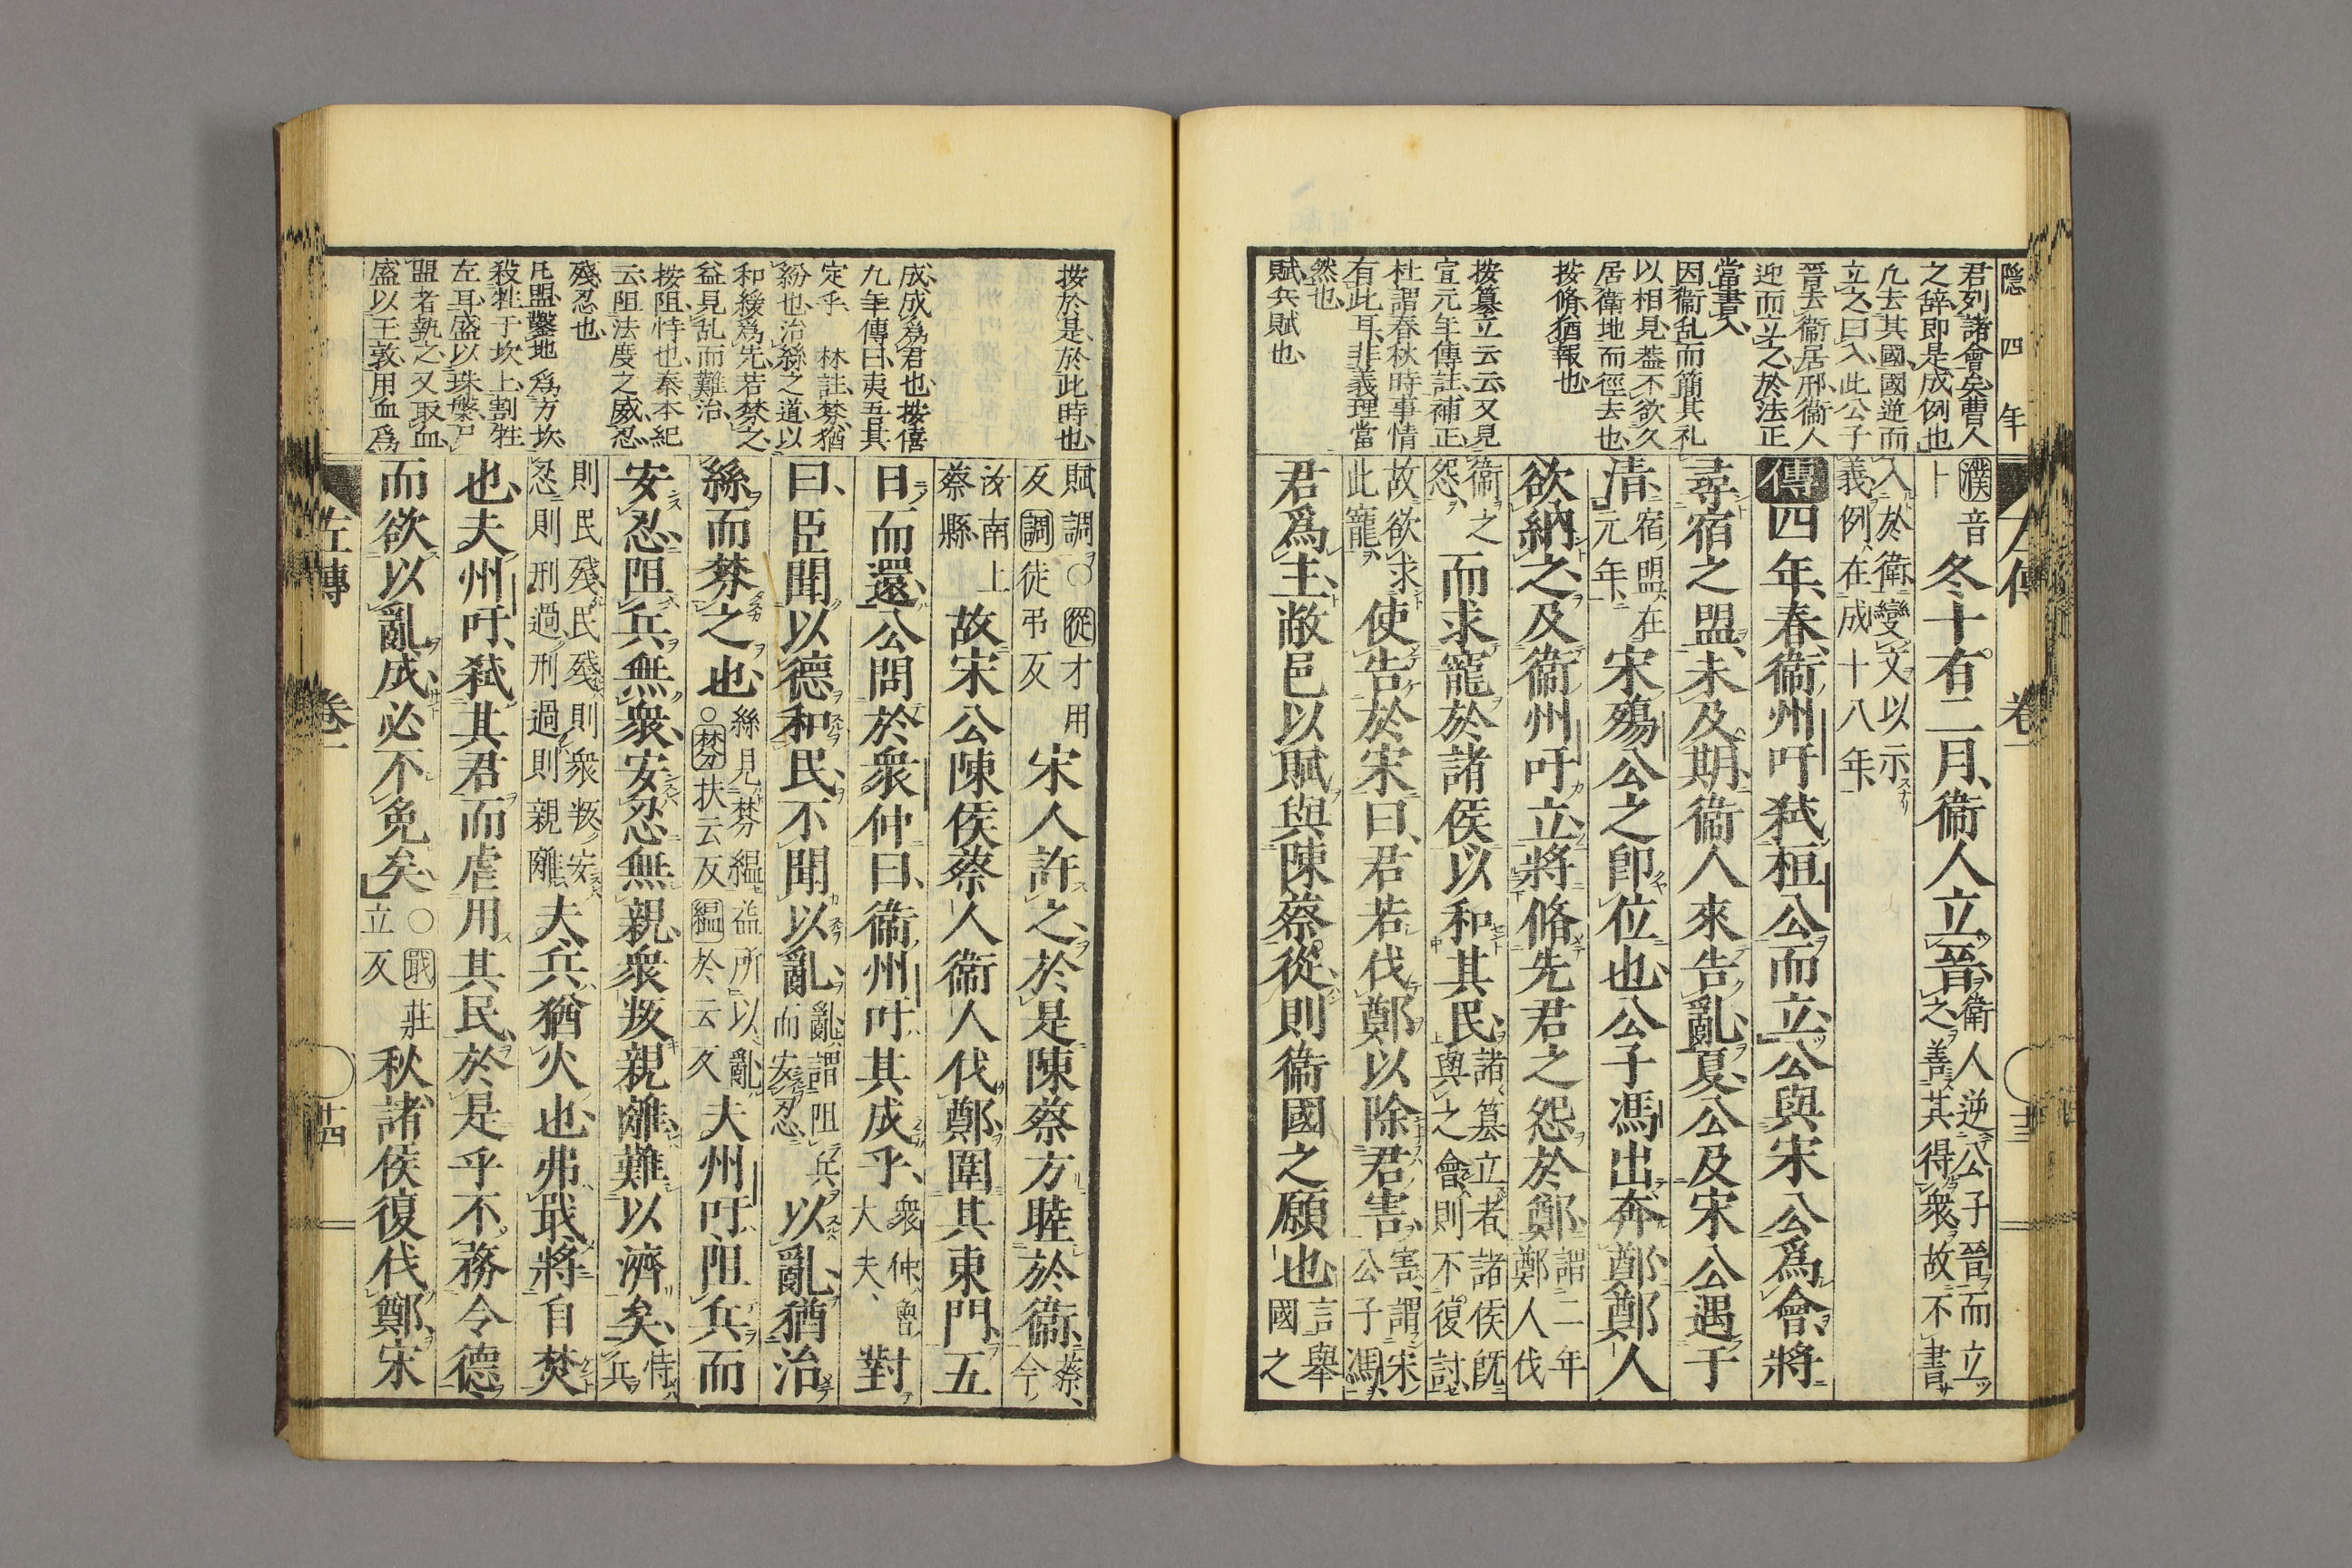 隠四年
左傳 卷一 十三
君列諸會矣曹人
之辞即是成例也
凢去其國國逆而
立之曰入此公子
晉去衞居邢衞人
迎而立之於法正
當書入
因衞乱而簡其礼
以相見蓋不欲久
居衞地而徑去也
按脩猶報也
按篡立云云又見
宣元年傳註補正
杜謂春秋時事情
有此耳非義理當
然也
賦兵賦也
濮音
卜
冬十有二月衞人立晉
衞人逆公子晉而立
之善其得衆故不書
入於衞變文以示
義例在成十八年
傳四年春衞州吁弑桓公而立公與宋公爲會將
尋宿之盟未及期衞人來告亂夏公及宋公遇于
清
宿盟在
元年
宋殤公之即位也公子馮出奔鄭鄭人
欲納之及衞州吁立將脩先君之怨於鄭
謂二年
鄭人伐
衞之
怨
而求寵於諸侯以和其民
諸篡立者諸侯旣
與之會則不復討
故欲求
此寵
使告於宋曰君若伐鄭以除君害
害謂宋
公子馮
君爲主敝邑以賦與陳蔡從則衞國之願也
言舉
國之
按於是於此時也
成成爲君也按僖
九年傳曰夷吾其
定乎 林註棼猶
紛也治絲之道以
和緩爲先若棼之
益見乱而難治
按阻恃也秦本紀
云阻法度之威忍
殘忍也
凡盟鑿地爲方坎
殺牲于坎上割牲
左耳盛以珠槃尸
盟者執之又取血
盛以王敦用血爲
賦調○從才用
反調徒弔反
宋人許之於是陳蔡方睦於衞
蔡今
汝南上
蔡縣
故宋公陳侯蔡人衞人伐鄭圍其東門五
日而還公問於衆仲曰衞州吁其成乎
衆仲魯
大夫
對
曰臣聞以德和民不聞以亂
亂謂阻兵
而安忍
以亂猶治
絲而棼之也
絲見棼緼益所以亂
○棼扶云反緼於云反
夫州吁阻兵而
安忍阻兵無衆安忍無親衆叛親離難以濟矣
恃兵
則民殘民殘則衆叛安
忍則刑過刑過則親離
夫兵猶火也弗戢將自焚
也夫州吁弑其君而虐用其民於是乎不務令德
而欲以亂成必不免矣
○戢莊
立反
秋諸侯復伐鄭宋
左傳 卷一 十四